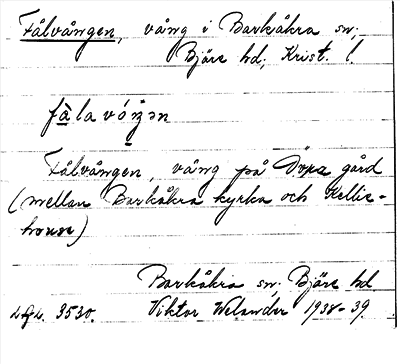 Fålvången, vång i Barkåkra sn;
Bjäre hd; Krist. l.
fàla vóŋən
Fålvången, vång på Öxra gård
(mellan Barkåkra kyrka och Kellie-
house)
Barkåkra sn; Bjäre hd
3530. Viktor Welander 1938-39.